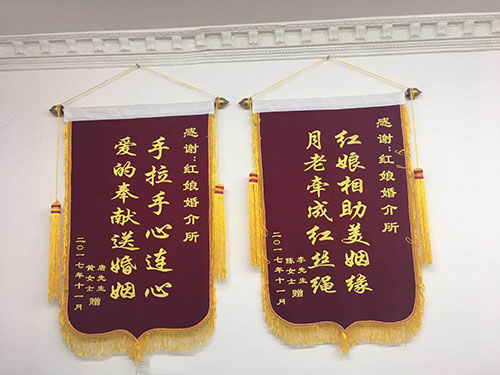 感谢:红娘婚介所
手拉手心连心
爱的奉献送婚姻
唐先生
黄女士
赠
二〇一七年十一月
感谢:红娘婚介所
红娘相助美姻缘
月老牵成红丝绳
李先生
陈女士
赠
二〇一七年十一月